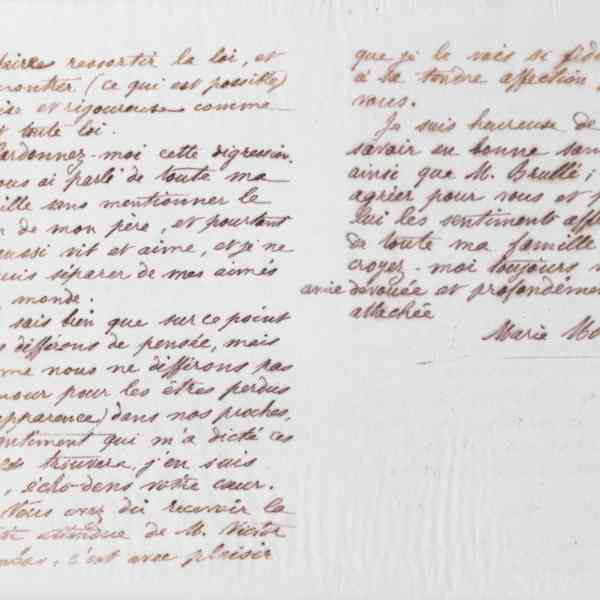 faire ressortir la loi, et
montrer (ce qui est possible)
et rigoureuse comme
toute loi.
Pardonnez-moi cette digression.
vous ai parlé de toute ma
famille sans mentionner le
de mon père, et pourtant
aussi vit et aime, et je ne
puis séparer de mes aimés
monde.
sais bien que sur ce point
différons de pensée, mais
nous ne différons pas
amour pour les êtres perdus
apparence) dans nos proches,
sentiment qui m'a dicté ces
trouvera, j'en suis
, écho dans votre cœur.
Vous avez dû recevoir la
attendue de M. Victor
c'est avec plaisir
que je le vois si
à sa tendre affection
vous.
Je suis heureuse de
savoir en bonne
ainsi que M. Brullé;
agréer pour vous et
lui les sentiments
de toute ma famille
croyez-moi toujours
amie dévouée et profondément
attachée
Marie